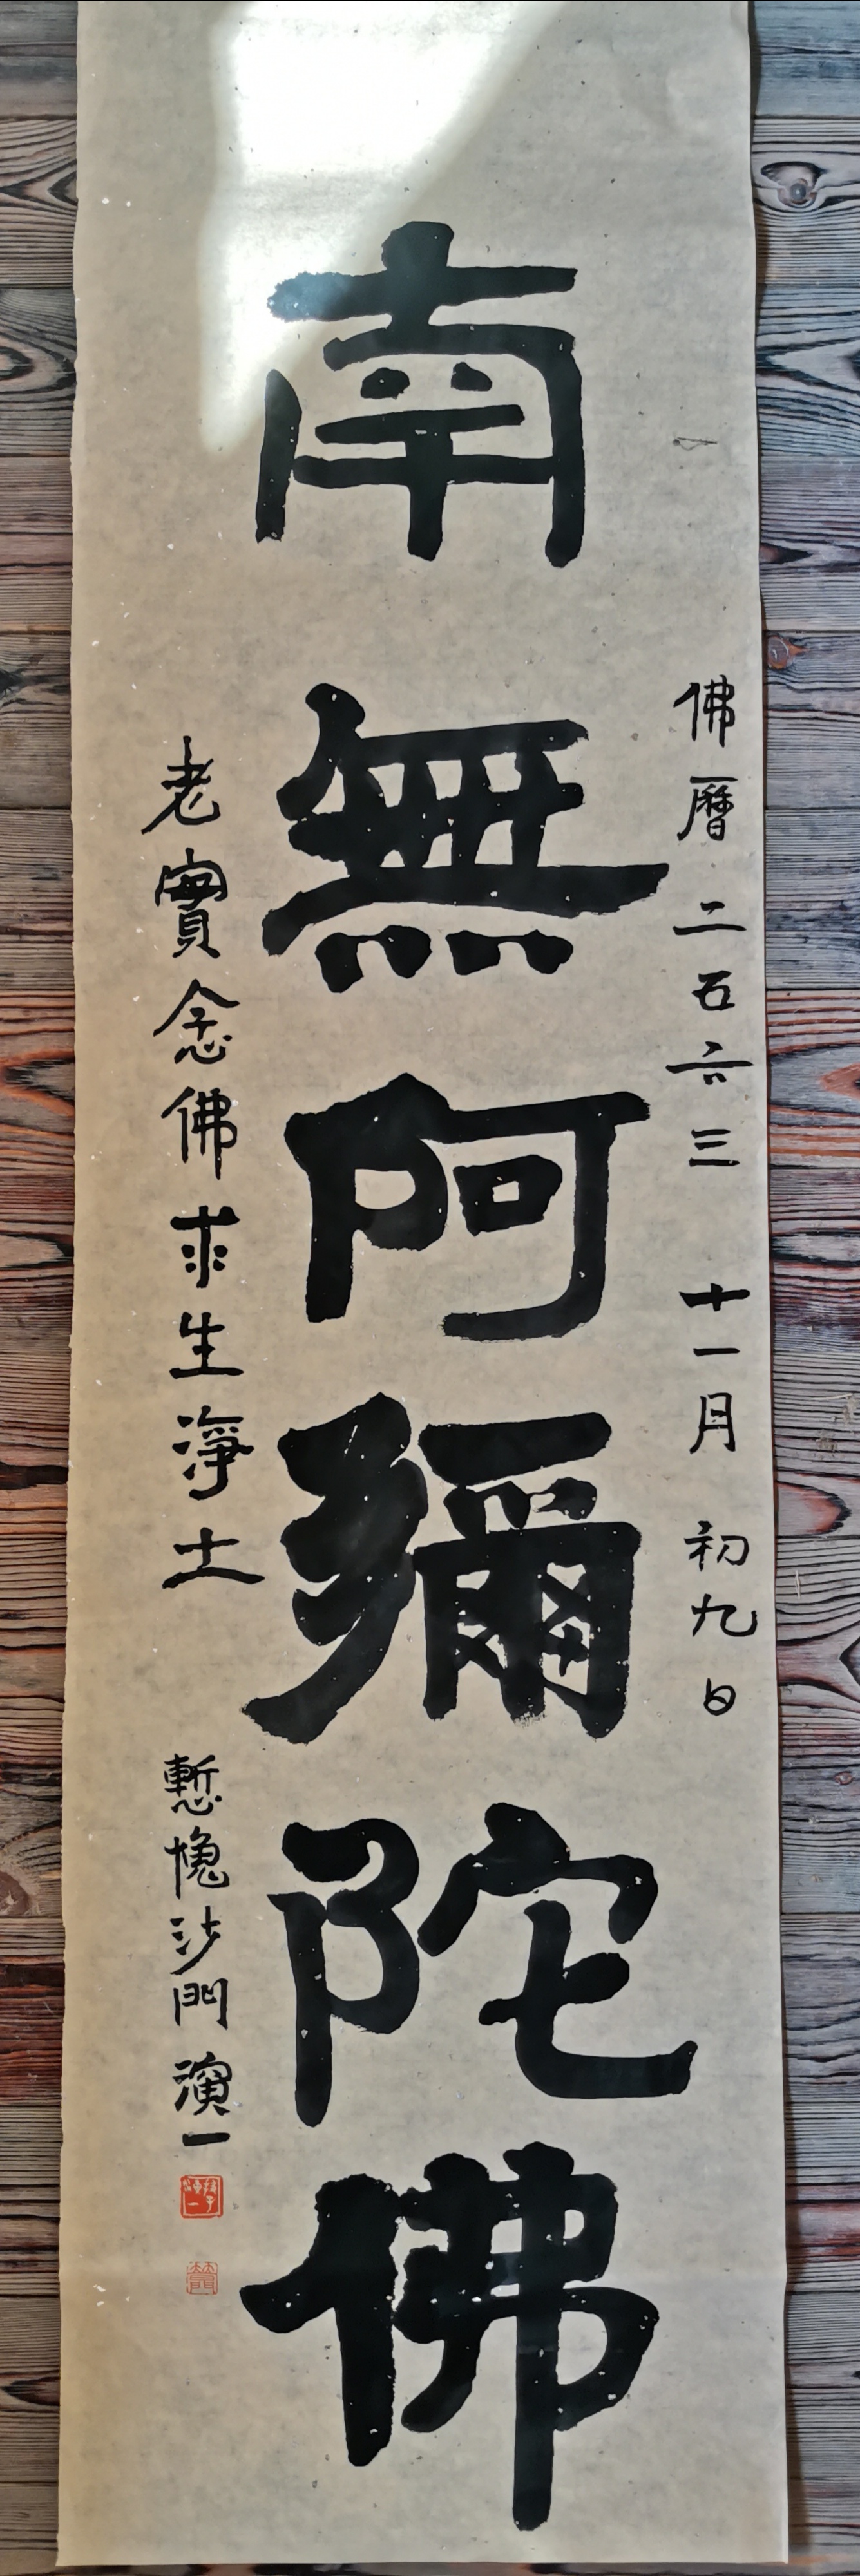 佛曆二五六三 十一月 初九日
南無阿彌陀佛
老實念佛求生淨土 慙愧沙門演一